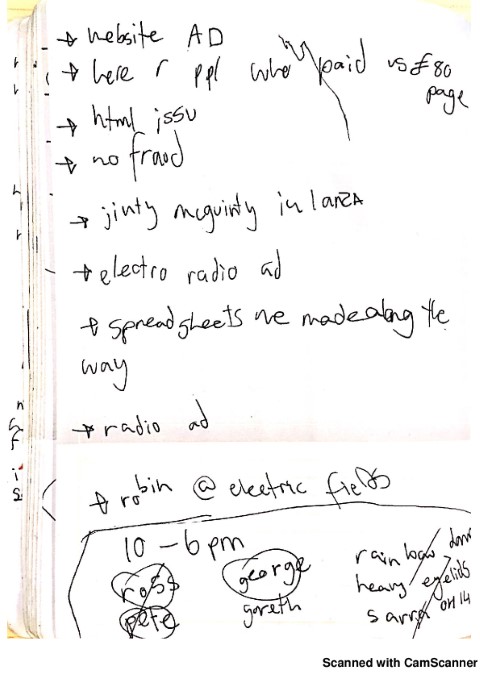 → website AD
→ here r ppl who paid us £80
page
→ html issu
→ no fraud
→ jinty mcguinty in lanzA
→ electro radio ad
→ spreadsheets we made along the
way
→ radio ad
→ robin @ electric fields
10 - 6 pm
ross
george
pete
goreth
rain bow
heavy eyelids
sarra on 14
Scanned with CamScanner